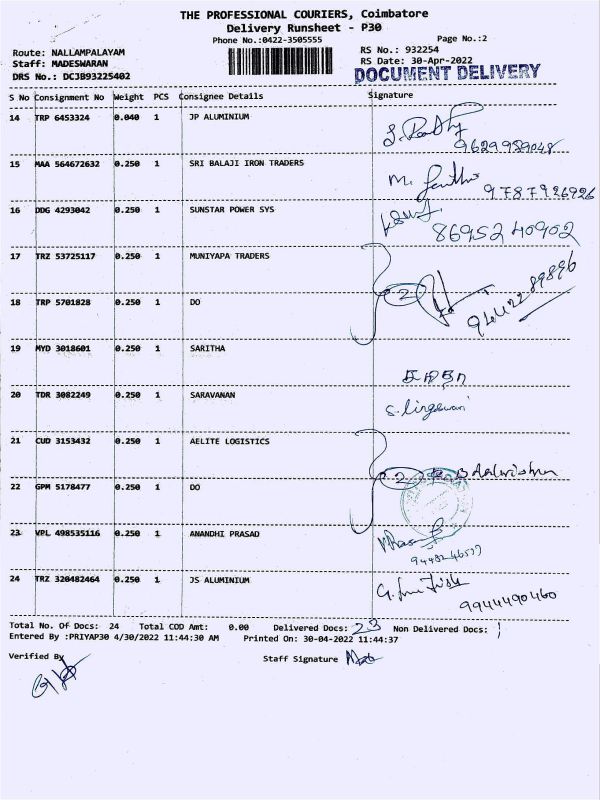 THE PROFESSIONAL COURIERS, Coimbatore
Delivery Runsheet - P30
Phone No.:0422-3505555
Page No.:2
Route: NALLAMPALAYAM
RS No.: 932254
Staff: MADESWARAN
RS Date: 30-Apr-2022
DRS No.: DCJB93225402
DOCUMENT DELIVERY
S No Consignment No Weight PCS Consignee Details Signature
14 TRP 6453324 0.040 1 JP ALUMINIUM
9629959048
15 MAA 564672632 0.250 1 SRI BALAJI IRON TRADERS
9787926926
16 DDG 4293042 0.250 1 SUNSTAR POWER SYS
8695240902
17 TRZ 53725117 0.250 1 MUNIYAPA TRADERS
2
18 TRP 5701828 0.250 1 DO
19 MYD 3018601 0.250 1 SARITHA
20 TDR 3082249 0.250 1 SARAVANAN
21 CUD 3153432 0.250 1 AELITE LOGISTICS
2
22 GPM 5178477 0.250 1 DO
23 VPL 498535116 0.250 1 ANANDHI PRASAD
24 TRZ 320482464 0.250 1 JS ALUMINIUM
9944490460
Total No. Of Docs: 24 Total COD Amt: 0.00 Delivered Docs: 23 Non Delivered Docs: 1
Entered By :PRIYAP30 4/30/2022 11:44:30 AM Printed On: 30-04-2022 11:44:37
Verified By Staff Signature